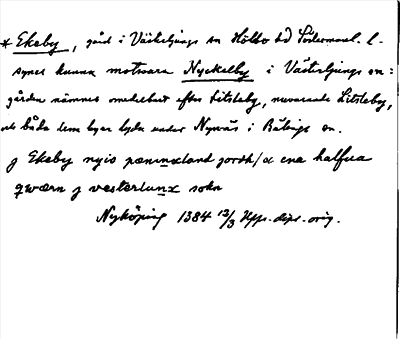 * Ekeby, gård i Västerljungs sn Hölbo hd Södermanl. l.
synes kunna motsvara Nyckelby i Västerljungs sn:
gården nämnes omedelbart efter Litsleby, nuvarande Litsleby,
och båda dem byar lyda under Nynäs i Bälinge sn.
j Ekeby nyio pænninxland jordh /oc ena halfua
qwærn j vesterlunx sokn
Nyköping 1384 13/3 Upps. dipl. orig.